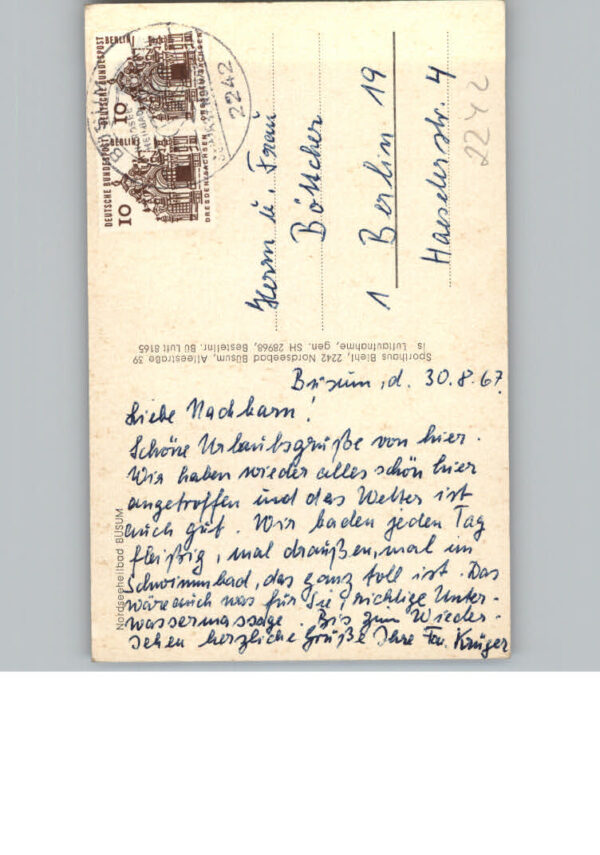 DEUTSCHE BUNDESPOST
BERLIN
10
DRESDEN/SACHSEN
DEUTSCHE BUNDESPOST
BERLIN
10
DRESDEN/SACHSEN
BÜSUM
2242
Herrn u. Frau
Böttcher
1 Berlin 19
Haeselerstr. 4
2242
Sporthaus Blehl, 2242 Nordseebad Büsum, Alleestraße 39
is Luftaufnahme, gen. SH 28968, Bestellnr. Bü Luft 8165
Nordseeheilbad BÜSUM
Büsum, d. 30.8.67
Liebe Nachbarn!
Schöne Urlaubsgrüße von hier.
Wir haben wieder alles schön hier
angetroffen und das Wetter ist
auch gut. Wir baden jeden Tag
fleißig, mal draußen, mal im
Schwimmbad, das ganz toll ist. Das
wäre auch was für Sie, richtige Unter-
wassermassage. Bis zum Wieder-
sehen herzliche Grüße Ihre Fam. Krüger